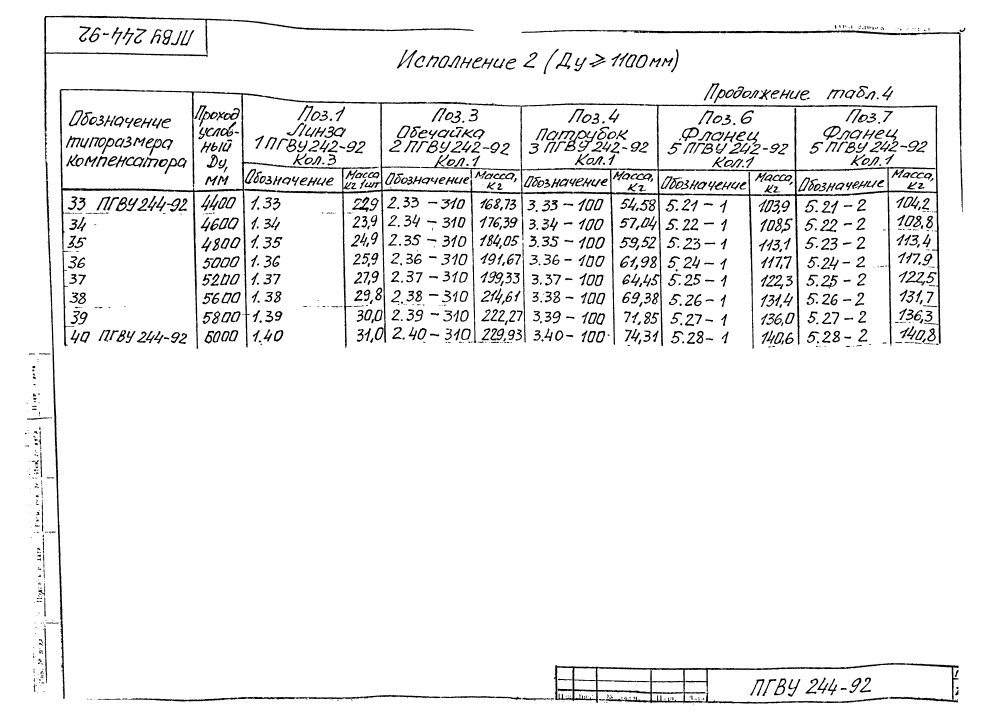 ПГВУ 244-92
Исполнение 2 (Ду ≥ 1100 мм)
Продолжение табл. 4
Обозначение типоразмера компенсатора | Проход услов-ный Ду, мм | Поз. 1 Линза 1 ПГВУ 242-92 Кол. 3 | Поз. 3 Обечайка 2 ПГВУ 242-92 Кол. 1 | Поз. 4 Патрубок 3 ПГВУ 242-92 Кол. 1 | Поз. 6 Фланец 5 ПГВУ 242-92 Кол. 1 | Поз. 7 Фланец 5 ПГВУ 242-92 Кол. 1
Обозначение | Масса кг 1шт | Обозначение | Масса, кг | Обозначение | Масса, кг | Обозначение | Масса, кг | Обозначение | Масса, кг
33 ПГВУ 244-92 | 4400 | 1.33 | 22,9 | 2.33 - 310 | 168,73 | 3.33 - 100 | 54,58 | 5.21 - 1 | 103,9 | 5.21 - 2 | 104,2
34 | 4600 | 1.34 | 23,9 | 2.34 - 310 | 176,39 | 3.34 - 100 | 57,04 | 5.22 - 1 | 108,5 | 5.22 - 2 | 108,8
35 | 4800 | 1.35 | 24,9 | 2.35 - 310 | 184,05 | 3.35 - 100 | 59,52 | 5.23 - 1 | 113,1 | 5.23 - 2 | 113,4
36 | 5000 | 1.36 | 25,9 | 2.36 - 310 | 191,67 | 3.36 - 100 | 61,98 | 5.24 - 1 | 117,7 | 5.24 - 2 | 117,9
37 | 5200 | 1.37 | 27,9 | 2.37 - 310 | 199,33 | 3.37 - 100 | 64,45 | 5.25 - 1 | 122,3 | 5.25 - 2 | 122,5
38 | 5600 | 1.38 | 29,8 | 2.38 - 310 | 214,61 | 3.38 - 100 | 69,38 | 5.26 - 1 | 131,4 | 5.26 - 2 | 131,7
39 | 5800 | 1.39 | 30,0 | 2.39 - 310 | 222,27 | 3.39 - 100 | 71,85 | 5.27 - 1 | 136,0 | 5.27 - 2 | 136,3
40 ПГВУ 244-92 | 6000 | 1.40 | 31,0 | 2.40 - 310 | 229,93 | 3.40 - 100 | 74,31 | 5.28 - 1 | 140,6 | 5.28 - 2 | 140,8
ПГВУ 244-92